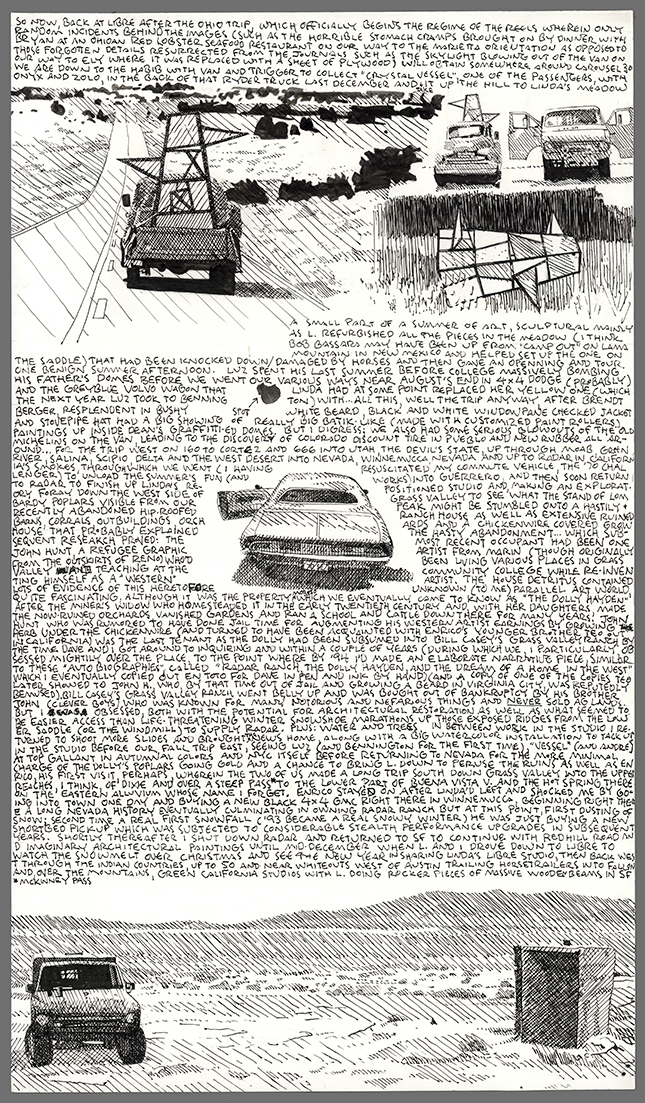 SO NOW, BACK AT LIBRE AFTER THE OHIO TRIP, WHICH OFFICIALLY BEGINS THE REGIME OF THE REELS WHEREIN ONLY
RANDOM INCIDENTS BEHIND THE IMAGES (SUCH AS THE HORRIBLE STOMACH CRAMPS BROUGHT ON BY DINNER WITH
BRYAN AT AN OHIOAN RED LOBSTER SEAFOOD RESTAURANT ON OUR WAY TO THE MARIETTA ORIENTATION AS OPPOSED TO
THOSE FORGOTTEN DETAILS RESURRECTED FROM THE JOURNALS SUCH AS THE SKYLIGHT BLOWING OUT OF THE VAN ON
OUR WAY TO ELY WHERE IT WAS REPLACED WITH A SHEET OF PLYWOOD) WILL OBTAIN SOMEWHERE AROUND CAROUSEL 30
WE ARE DOWN TO THE HABIB WITH VAN AND TRIGGER TO COLLECT "CRYSTAL VESSEL", ONE OF THE PASSENGERS, WITH
ONYX AND ZOZO, IN THE BACK OF THAT RYDER TRUCK LAST DECEMBER AND IT UP THE HILL TO LINDA'S MEADOW
A SMALL PART OF A SUMMER OF ART, SCULPTURAL MAINLY
AS L. REFURBISHED ALL THE PIECES IN THE MEADOW (I THINK
BOB GASSARS MAY HAVE BEEN UP FROM 'CAMP OUT' ON LAMA
MOUNTAIN IN NEW MEXICO AND HELPED SET UP THE ONE ON
THE SADDLE) THAT HAD BEEN KNOCKED DOWN/DAMAGED BY HORSES AND THEN GAVE AN OPENING AND TOUR
ONE BENIGN SUMMER AFTERNOON. LUZ SPENT HIS LAST SUMMER BEFORE COLLEGE MASSIVELY BOMBING
HIS FATHER'S DOMES BEFORE WE WENT OUR VARIOUS WAYS NEAR AUGUST'S END IN 4X4 DODGE (PROBABLY)
AND THE GREYBLUE VOLVO WAGON THAT LINDA HAD AT SOME POINT REPLACED HER YELLOW ONE (WHICH
THE NEXT YEAR LUZ TOOK TO BENNING TON) WITH. ALL THIS, WELL THE TRIP ANYWAY AFTER BRENDEN
BERGER, RESPLENDENT IN BUSHY WHITE BEARD, BLACK AND WHITE WINDOWPANE CHECKED JACKET
AND STOVEPIPE HAT HAD A BIG SHOWING OF SPOT REALLY BIG BATIK-LIKE (MADE WITH CUSTOMIZED PAINT ROLLERS)
PAINTINGS UP INSIDE DEAN'S GRAFFITIED DOMES. BUT I DIGRESS: WE ALSO HAD SOME SERIOUS BLOWOUTS OF THE OLD
MICHELINS ON THE VAN, LEADING TO THE DISCOVERY OF COLORADO DISCOUNT TIRE IN PUEBLO AND NEW RUBBER ALL AR-
OUND... FOR THE TRIP WEST ON 160 TO CORTEZ AND 666 INTO UTAH, THE DEVIL'S STATE, UP THROUGH MOAB, GREEN
RIVER, SALINA, SCIPIO, DELTA AND THE WEST DESERT INTO NEVADA, WINNEMUCCA, NEVADA AND UP TO RADAR IN CALIFORN
IA'S SMOKES THROUGH WHICH WE WENT (I HAVING RESUSCITATED MY COMMUTE VEHICLE, THE '70 CHAL
LENGER) TO UNLOAD THE SUMMER'S FUN (AND WORKS) INTO GUERRERO, AND THEN SOON RETURN
TO RADAR TO FINISH UP LINDA'S RE- POSITIONED STUDIO AND MAKING AN EXPLORAT-
ORY FORAY DOWN THE WEST SIDE OF GRASS VALLEY TO SEE WHAT THE STAND OF LOM
BARDY POPLARS VISIBLE FROM OUR PEAK MIGHT BE STUMBLED ONTO A HASTILY +
RECENTLY ABANDONED HIP-ROOFED RANCH HOUSE AS WELL AS EXTENSIVE RUINED
BARNS, CORRALS, OUTBUILDINGS, ORCH ARDS AND A CHICKENWIRE COVERED GROW
HOUSE THAT PROBABLY EXPLAINED THE HASTY ABANDONMENT... WHICH SUB-
SEQUENT RESEARCH PROVED: THE MOST RECENT OCCUPANT HAD BEEN ONE
JOHN HUNT, A REFUGEE GRAPHIC ARTIST FROM MARIN (THOUGH ORIGINALLY
FROM THE OUTSKIRTS OF RENO) WHO'D BEEN LIVING VARIOUS PLACES IN GRASS
VALLEY TEACHING AT THE COMMUNITY COLLEGE WHILE RE-INVEN
TING HIMSELF AS A "WESTERN" ARTIST. THE HOUSE DETRITUS CONTAINED
LOTS OF EVIDENCE OF THIS HERETOFORE UNKNOWN (TO ME) PARALLEL ART WORLD
QUITE FASCINATING. ALTHOUGH IT WAS THE PROPERTY, WHICH WE EVENTUALLY CAME TO KNOW AS "THE DOLLY HAYDEN"
AFTER THE MINER'S WIDOW WHO HOMESTEADED IT IN THE EARLY TWENTIETH CENTURY AND, WITH HER DAUGHTERS MADE
THE NOW-RUINED ORCHARDS, VANISHED GARDENS, AND RAN A SCHOOL AND CATTLE DOWN THERE FOR MANY YEARS. JOHN
HUNT WHO WAS RUMORED TO HAVE DONE JAIL TIME FOR AUGMENTING HIS WESTERN ARTIST EARNINGS BY GROWING
UNDER THE CHICKENWIRE (AND TURNED TO HAVE BEEN ACQUAINTED WITH ENRICO'S YOUNGER BROTHER, TEO OUT
IN CALIFORNIA) WAS THE LAST TENANT AS THE DOLLY HAD BEEN SUBSUMED INTO BILL CASEY'S GRASS VALLEY RANCH BY
THE TIME DAVE AND I GOT AROUND TO INQUIRING AND WITHIN A COUPLE OF YEARS (DURING WHICH WE, I PARTICULARLY, OB
SESSED MIGHTILY OVER THE PLACE TO THE POINT WHERE BY '94 I'D MADE AN ELABORATE NARRATIVE PIECE, SIMILAR
TO THESE "AUTOBIOGRAPHIES", CALLED "RADAR RANCH, THE DOLLY HAYDEN, AND THE DREAM OF A HOME IN THE WEST"
WHICH I EVENTUALLY COPIED OUT EN TOTO FOR DAVE IN PEN AND INK BY HAND) (AND A COPY OF ONE OF THE COPIES TEO
LATER SHOWED TO JOHN H. WHO, BY THAT TIME OUT OF JAIL AND GROWING A BEARD IN VIRGINIA CITY WAS REPORTEDLY
BEMUSED), BILL CASEY'S GRASS VALLEY RANCH WENT BELLY UP AND WAS BOUGHT OUT OF BANKRUPTCY BY HIS BROTHER
JOHN (CLEVER BOYS) WHO WAS KNOWN FOR MANY NOTORIOUS AND NEFARIOUS THINGS AND NEVER SOLD AG LAND.
BUT I OBSESSED, BOTH WITH THE POTENTIAL FOR ARCHITECTURAL RESTORATION AS WELL AS WHAT SEEMED TO
BE EASIER ACCESS THAN LIFE-THREATENING WINTER SNOWSHOE MARATHONS UP THOSE EXPOSED RIDGES FROM THE LOW
ER SADDLE (OR THE WINDMILL) TO SUPPLY RADAR. PLUS: WATER AND TREES. IN BETWEEN WORK IN THE STUDIO I RE-
TURNED TO SHOOT MORE SLIDES AND BROUGHT SOUS HOME ALONG WITH A BIG WATERCOLOR INSTALLATION TO TACKLE
IN THE STUDIO BEFORE OUR FALL TRIP EAST, SEEING LUZ (AND BENNINGTON FOR THE FIRST TIME), "VESSEL" (AND ANDRE)
AT TOP GALLANT IN AUTUMNAL COLORS AND NYC ITSELF BEFORE RETURNING TO NEVADA FOR THE MORE MINIMAL
CHARGE OF THE DOLLY'S POPLARS GOING GOLD AND A CHANCE TO BRING L. DOWN TO PERUSE THE RUINS AS WELL AS EN
RICO, HIS FIRST VISIT PERHAPS, WHEREIN THE TWO OF US MADE A LONG TRIP SOUTH DOWN GRASS VALLEY INTO THE UPPER
REACHES, I THINK, OF DIXIE AND OVER A STEEP PASS* TO THE LOWER PART OF BUENA VISTA V. AND THE HOT SPRING THERE
ON THE EASTERN ALLUVIUM WHOSE NAME I FORGET. ENRICO STAYED ON AFTER LINDA'D LEFT AND SHOCKED ME BY GO-
ING INTO TOWN ONE DAY AND BUYING A NEW BLACK 4X4 GMC RIGHT THERE IN WINNEMUCCA, BEGINNING RIGHT THERE
A LONG NEVADA HISTORY EVENTUALLY CULMINATING IN OWNING RADAR RANCH BUT AT THIS POINT, FIRST DUSTING OF
SNOW; SECOND THEN A REAL FIRST SNOWFALL ('93 BECAME A REAL SNOWY WINTER) HE WAS JUST BUYING A BLACK
SHORTBED PICKUP WHICH WAS SUBJECTED TO CONSIDERABLE STEALTH PERFORMANCE UPGRADES IN SUBSEQUENT
YEARS. SHORTLY THEREAFTER I SHUT DOWN RADAR AND RETURNED TO SF TO CONTINUE WITH REDHILL ROAD AN
D IMAGINARY ARCHITECTURAL PAINTINGS UNTIL MID-DECEMBER WHEN L. AND I DROVE DOWN TO LIBRE TO
WATCH THE SNOWMELT OVER CHRISTMAS AND SEE THE NEW YEAR IN SHARING LINDA'S LIBRE STUDIO, THEN BACK WES
T THROUGH THE INDIAN COUNTRIES, UP TO 50 AND NEAR WHITEOUTS WEST OF AUSTIN TRAILING HORSETRAILERS INTO FALLON
AND, OVER THE MOUNTAINS, GREEN CALIFORNIA STUDIOS WITH L. DOING ROCKER PIECES OF MASSIVE WOODEN BEAMS IN SF
* MCKINNEY PASS